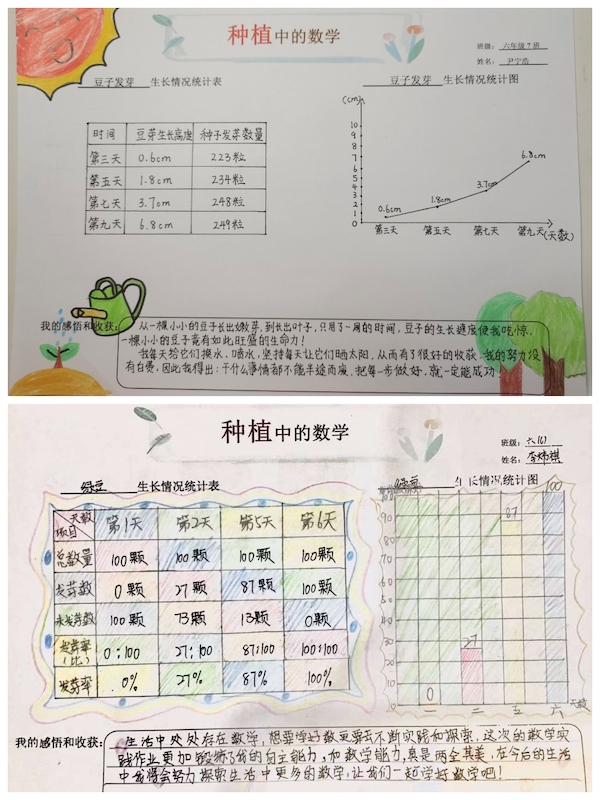 种植中的数学
班级：六年级7班
姓名：尹宁浩
豆子发芽 生长情况统计表
豆子发芽 生长情况统计图
时间 豆芽生长高度 种子发芽数量
第三天 0.6cm 223粒
第五天 1.8cm 234粒
第七天 3.7cm 248粒
第九天 6.8cm 249粒
(cm)
10
9
8
7
6
5
4
3
2
1
0
0.6cm
1.8cm
3.7cm
6.8cm
第三天 第五天 第七天 第九天 (天数)
我的感悟和收获：
从一棵小小的豆子长出嫩芽，到长出叶子，只用了一周的时间，豆子的生长速度使我吃惊，
一棵小小的豆子竟有如此旺盛的生命力！
我每天给它们换水、喷水，坚持每天让它们晒太阳，从而有了很好的收获，我的努力没
有白费，因此我得出：干什么事情都不能半途而废，把每一步做好，就一定能成功！
种植中的数学
班级：六(6)
姓名：李炜祺
绿豆 生长情况统计表
绿豆 生长情况统计图
天数 项目 第1天 第2天 第5天 第6天
总数量 100颗 100颗 100颗 100颗
发芽数 0颗 27颗 87颗 100颗
未发芽数 100颗 73颗 13颗 0颗
发芽率(比) 0:100 27:100 87:100 100:100
发芽率 0% 27% 87% 100%
100
90
87
80
70
60
50
40
30
27
20
10
0
0
一 二 五 六 天数
我的感悟和收获：
生活中处处存在数学，想要学好数更要去不断实践和探索，这次的数学实
践作业更加锻炼了我的自主能力，和数学能力，真是两全其美，在今后的生活
中我将会努力探索生活中更多的数学，让我们一起学好数学吧！